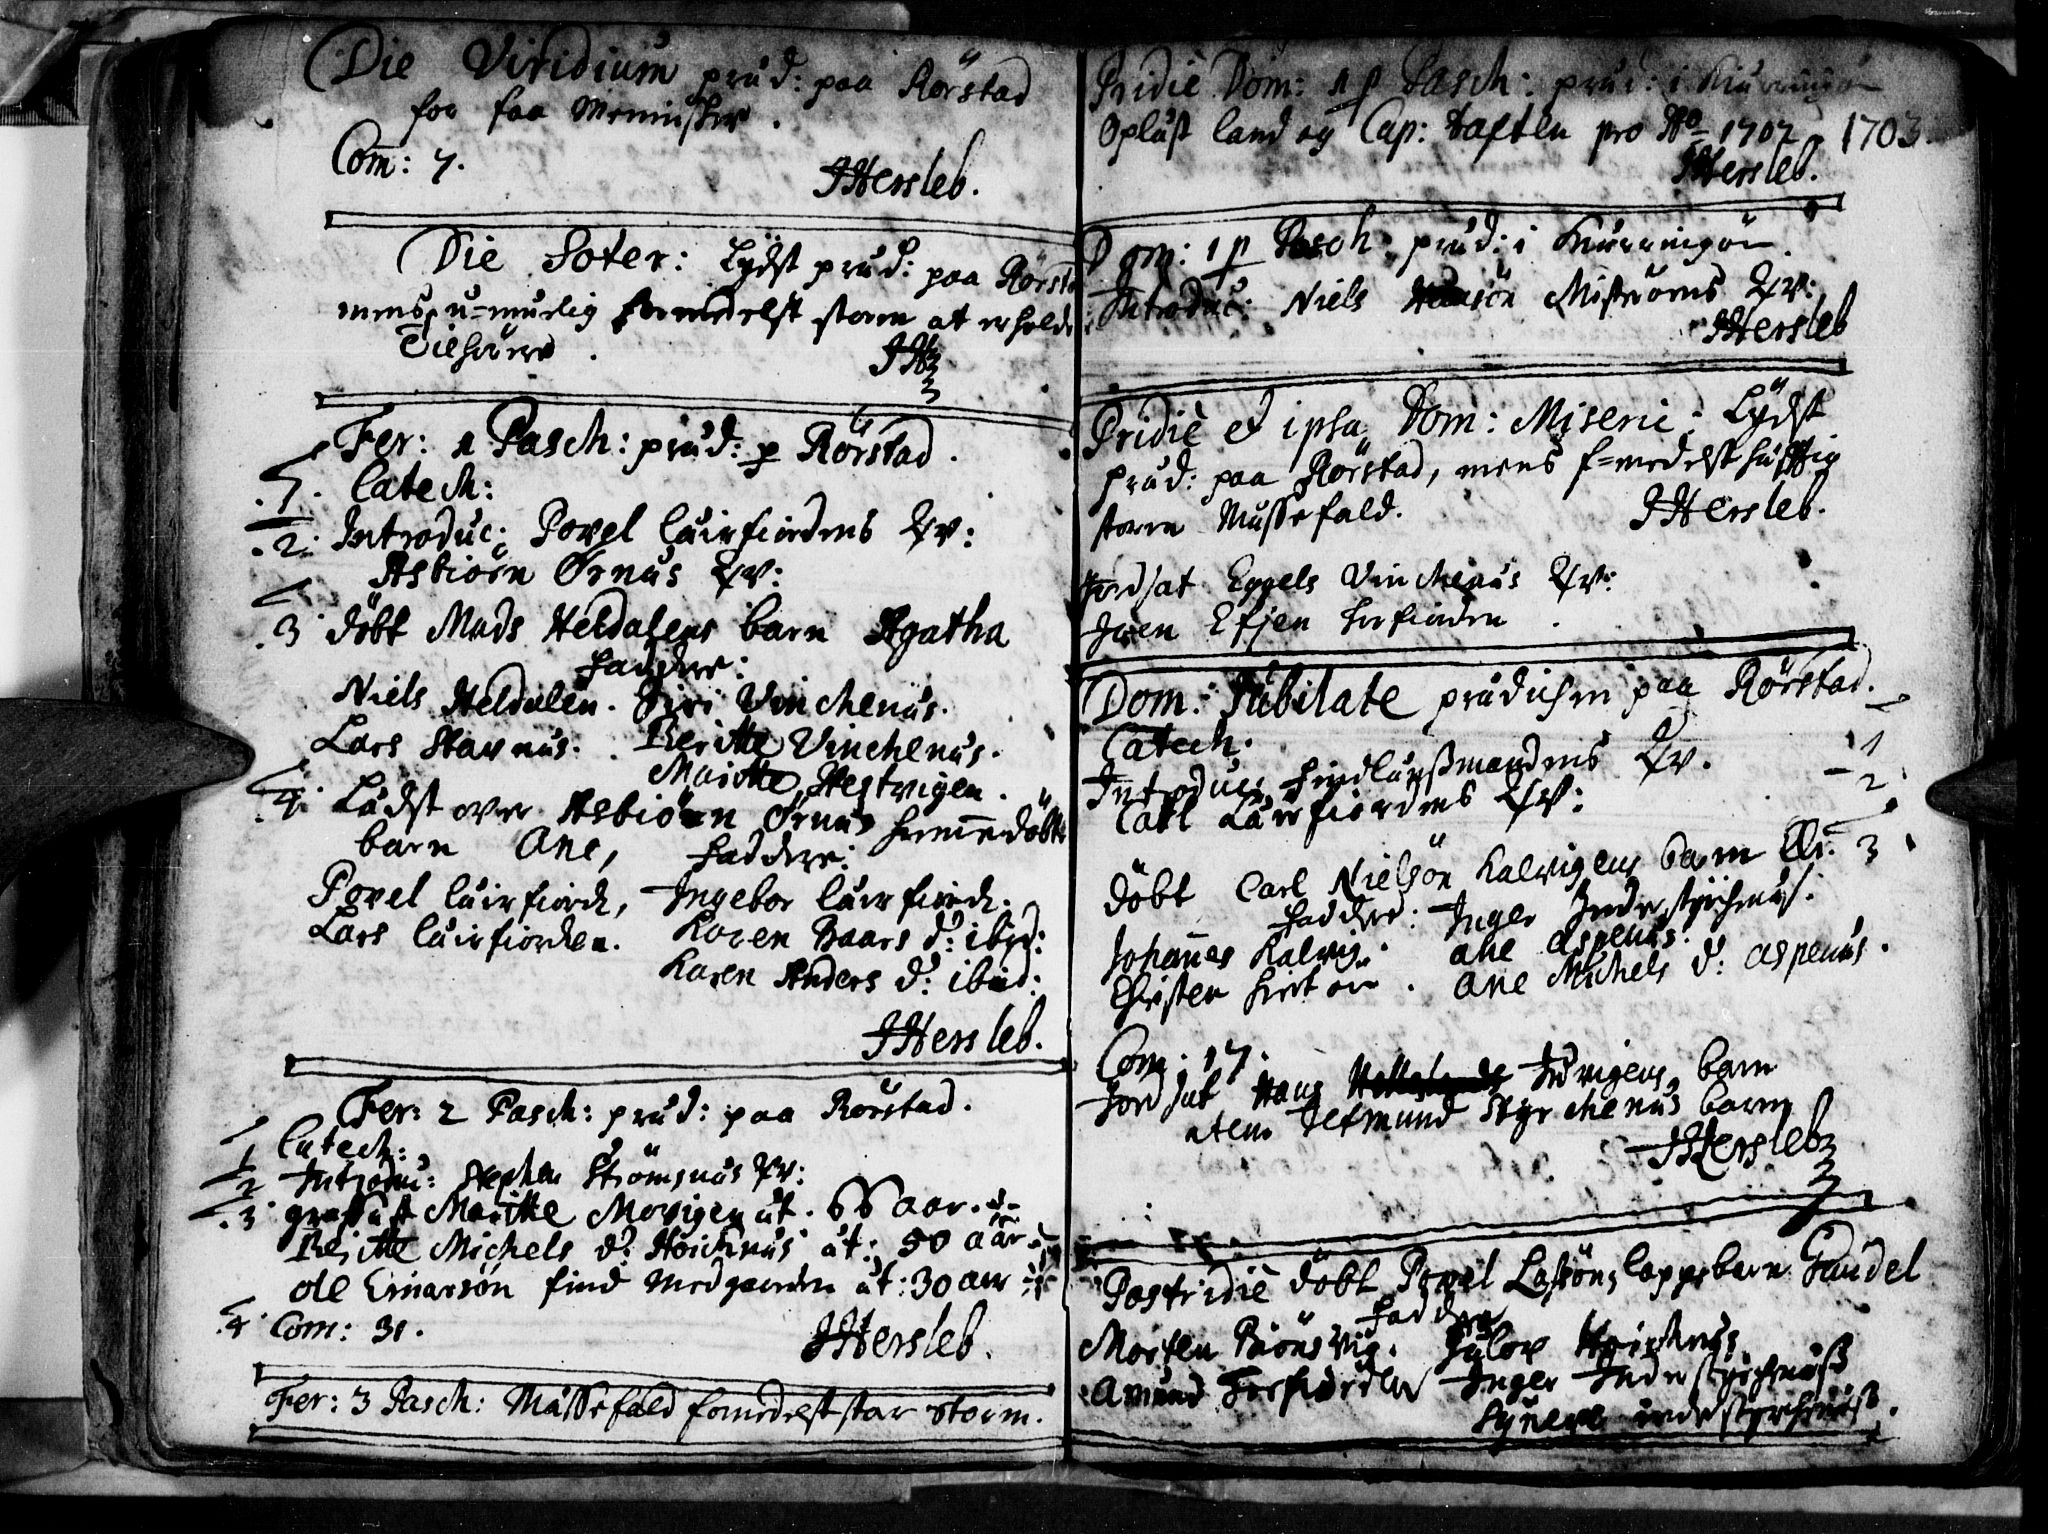 Die Viridium præd: paa Rörstad
for faa Mennisker.
Com: 7.
JHersleb.
Die Soter: Lydst præd: paa Rörstad
mens u-muelig formedelst storm at erholde
Tilhörere.
JH
Fer: 1 Pasch: præd: p Rörstad.
.1. Catech:
.2. Introduc: Povel Lairfiordens Qv:
Asbiörn Örnæs Qv:
.3 döbt Mads Heldalens barn Agatha
Faddere:
Niels Heldalen. Siri Vinchenæs.
Lars Stavnæs. Beritte Vinchenæs.
Maritte Hestvigen.
.4. Læst over Asbiörn Örnæs hiemmedöbte
barn Ane, Faddere:
Povel Lairfiord, Ingebor Lairfiord.
Lars Lairfiorden. Karen Baars d: ibid:
Karen Anders d: ibid:
JHersleb.
Fer: 2 Pasch: præd: paa Rörstad.
1 Catech:
2 Introdu: Stephen Strömsnæs Qv:
.3 græsfæst Maritte Movigen æt. 66 aar.
Beritte Michels d: Hoichnæs æt: 50 aar
Ole Einarsön find Medgaarden æt: 30 aar
.4 Com: 31.
JHersleb.
Fer: 3 Pasch: Mæssefald formedelst stor storm.
Pridiè Dom: 1 p Pasch: præd: i Kierringön
Oplæst land og Cap: Taxten pro Ao 1702, 1703.
JHersleb.
Dom: 1 p Pasch: præd: i Kierringön.
Introduc: Niels Hansön Misteröens Qv:
JHersleb
Pridiè et ipsa Dom: Miseric: Lydst
præd: paa Rörstad, mens f-medelst hæfftig
storm Mæssefald. JHersleb.
Jordsat Eggels Vinchenæs Qv:
Iven Efjen Torfiorden.
Dom: Jubilate prædichen paa Rörstad.
Catech. 1
Introduc: Qv. 2
Carl Lairfiordens Qv:
döbt Carl Nielsön Kalvigens barn 3
Faddere: Inger Inderstyrchnæs.
Johannes Kalvig. Ane Aspenæs.
Christen. Ane Michels d: Aspenæs.
Com: 17.
Jordsat Hans Tørvigens barn
item Tetmund Styrchenæs barn
JHersleb
Postridiè döbt Povel Lassöns Lappebarn Gundel
Faddere
Morten Biönsvig.
Amund Torfiorden Inger Inderstyrchnæss
Synere inderstyrchnæss.